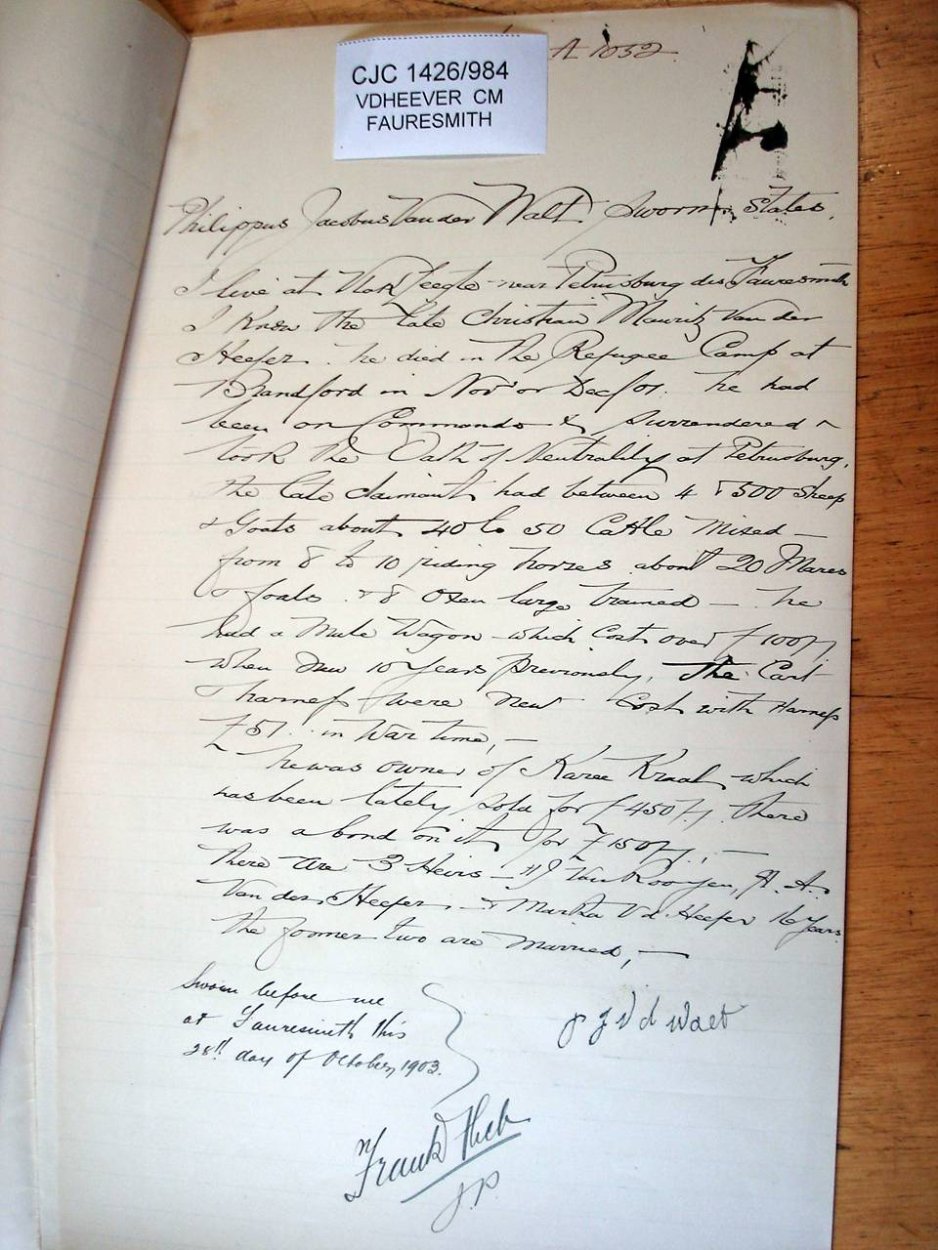 A 1032
CJC 1426/984
VDHEEVER CM
FAURESMITH
Philippus Jacobus Van der Walt Sworn States,
I live at near Petrusburg dis Fauresmith
I know the late Christian Mauritz Van der
Heefer. he died in the Refugee Camp at
Brandford in Novr or Dec/01. he had
been on Commando & surrendered &
took the Oath of Neutrality at Petrusburg.
The late claimant had between 4 & 500 Sheep
& Goats about 40 to 50 Cattle mixed —
from 8 to 10 riding horses about 20 Mares
& foals & 8 Oxen large trained — he
had a Mule Wagon which Cost over £100/,
when new 10 years previously, The Cart
& harness were new Cost with Harness
£51. in War time, —
he was owner of Karee Kraal which
has been lately sold for £450/, there
was a bond on it for £150/, —
There are 3 Heirs — J Van Rooyen, H. A.
Van der Heefer & Martha V d Heefer 16 years
the former two are married, —
Sworn before me
at Fauresmith this
28th day of October, 1903.
P J V d Walt
Frank
J.P.